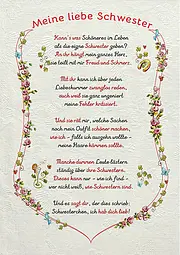 Meine liebe Schwester
Kann's was Schöneres im Leben
als die eigne Schwester geben?
An ihr hängt mein ganzes Herz,
sie teilt mit mir Freud und Schmerz.
Mit ihr kann ich über jeden
Liebeskummer zwanglos reden,
auch weil sie ganz ungeniert
meine Fehler kritisiert.
Und sie rät mir, welche Sachen
noch mein Outfit schöner machen,
wie ich – falls ich ausgehn wollte –
meine Haare kämmen sollte.
Manche dummen Leute lästern
ständig über ihre Schwestern.
Dieses kann nur – wie ich find –
wer nicht weiß, wie Schwestern sind.
Und es sagt dir, der dies schrieb:
Schwesterchen, ich hab dich lieb!